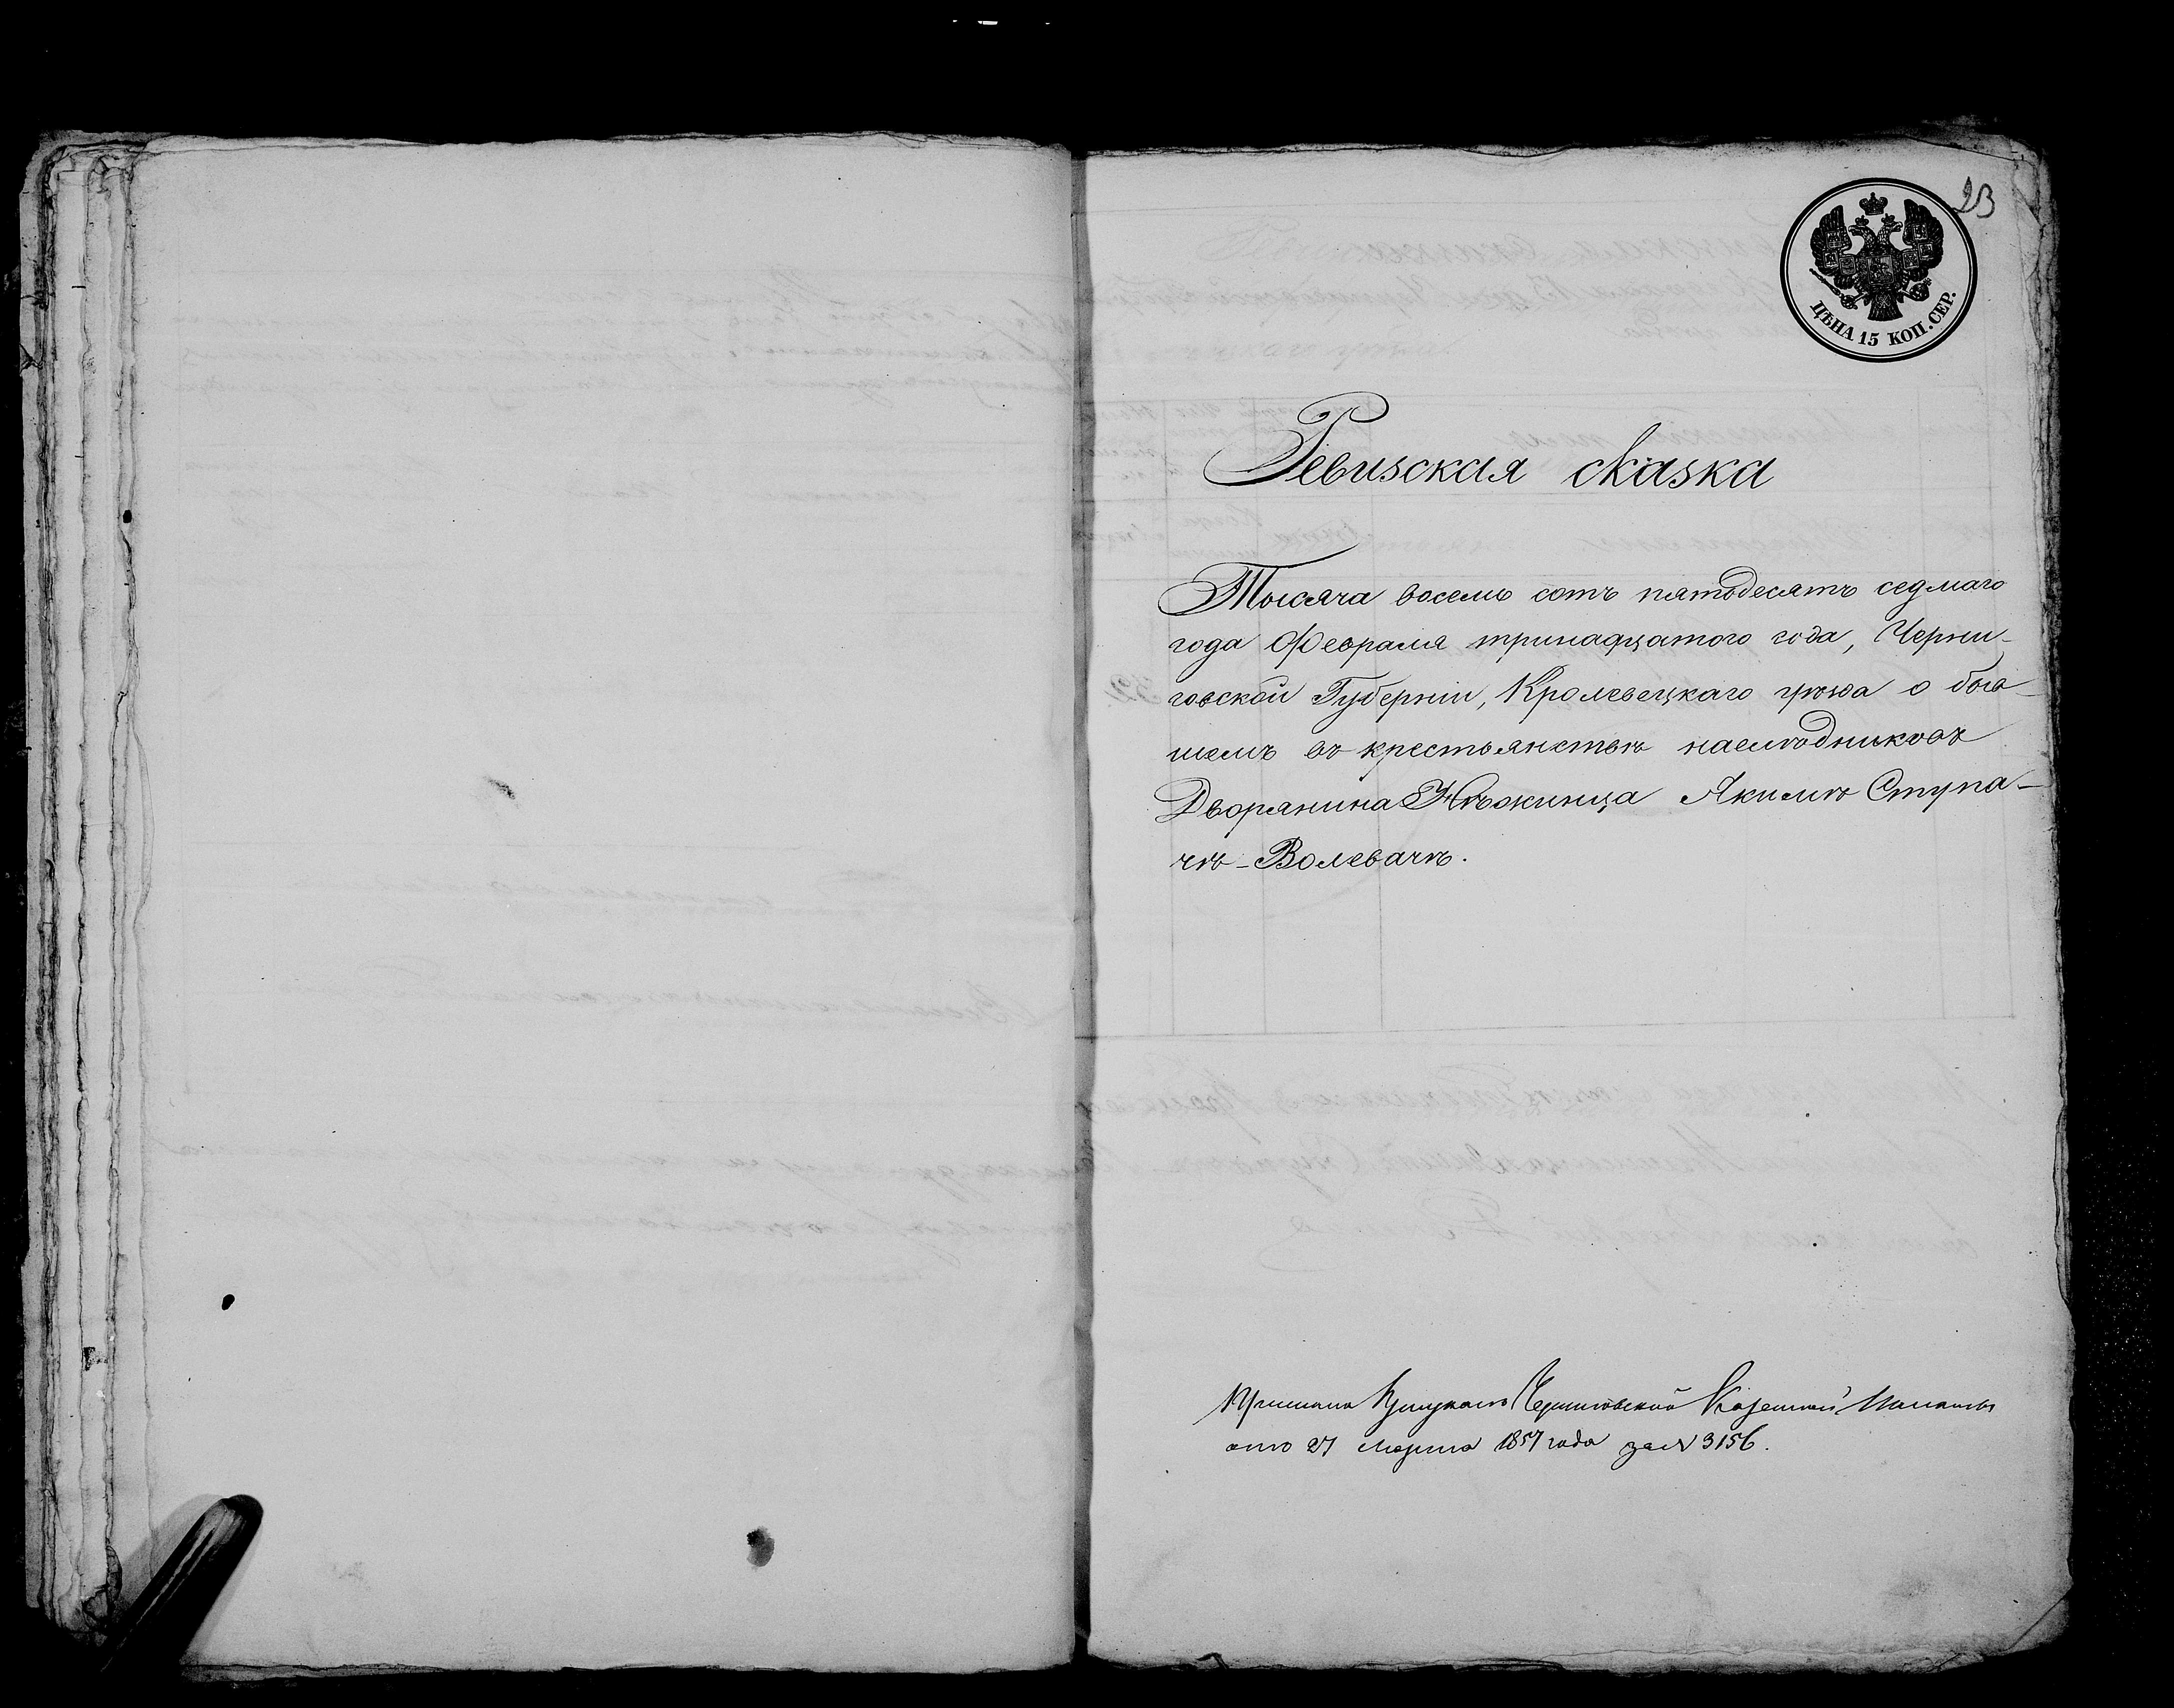 23
ЦѢНА 15 КОП. СЕР.
Ревизская сказка
Тысяча восемь сотъ пятьдесятъ седмаго
года Февраля тринадцатого года, Черни-
говской Губерніи, Кролевецкаго уѣзда о быв-
шемъ въ крестьянствѣ наслѣдниковъ
Дворянина Нѣжинца Якимѣ Ступа-
чѣ-Волевачѣ.
Черниговской Казенной Палаты
отъ 27 марта 1857 года за N 3156.